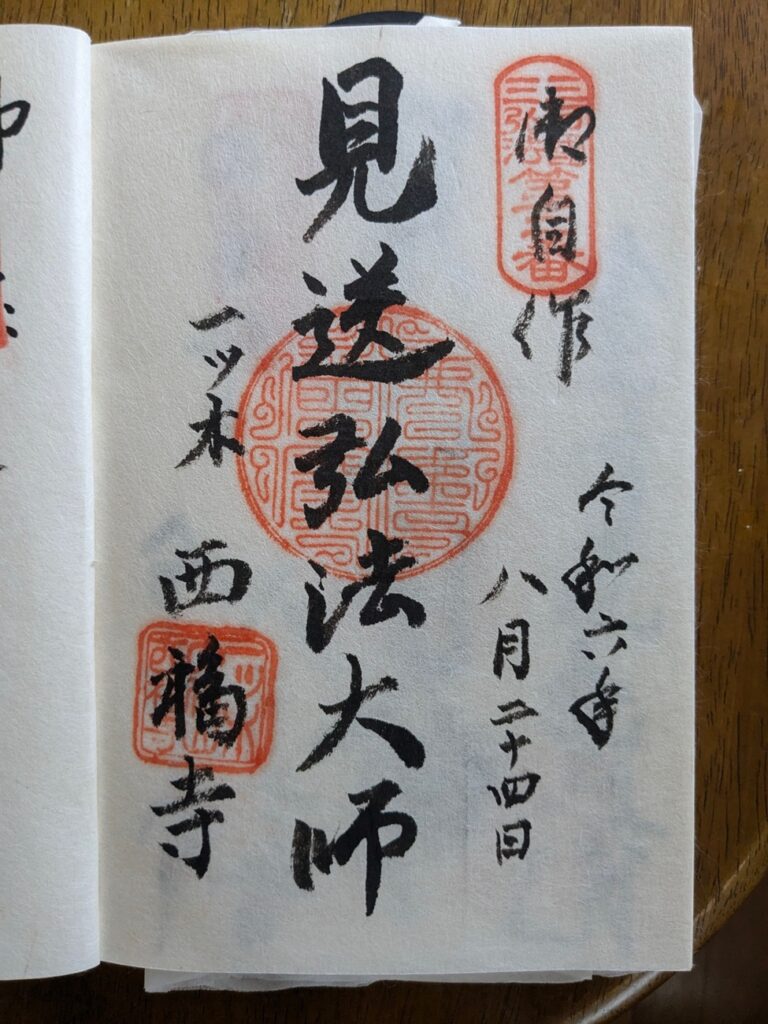 御自作
令和六年
八月二十四日
見送弘法大師
一ツ木 西福寺